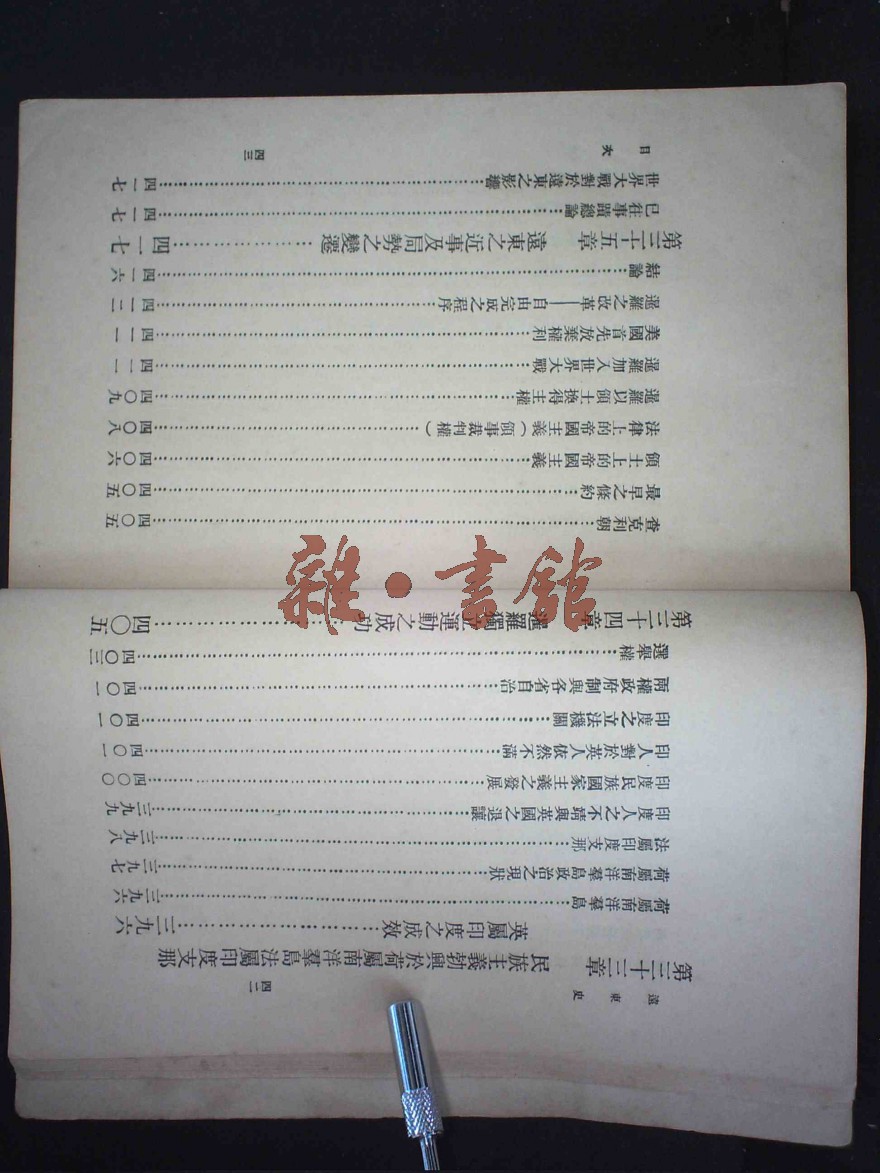 遠東史
四二
第三十三章　民族主義勃興於荷屬南洋羣島法屬印度支那
英屬印度之成效……三九六
荷屬南洋羣島……三九六
荷屬南洋羣島政治之現狀……三九七
法屬印度支那……三九八
印度人之不靖與英國之退讓……三九九
印度民族國家主義之發展……四〇〇
印人對於英人依然不滿……四〇一
印度之立法機關……四〇一
兩權政府制與各省自治……四〇一
選舉權……四〇三
第三十四章　暹羅獨立運動之成功……四〇五
查克利朝……四〇五
最早之條約……四〇五
領土上的帝國主義……四〇六
法律上的帝國主義（領事裁判權）……四〇八
暹羅以領土換得主權……四〇九
暹羅加入世界大戰……四一一
美國首先放棄權利……四一一
暹羅之改革——自由完成之程序……四一二
結論……四一六
第三十五章　遠東之近事及局勢之變遷……四一七
已往事蹟總論……四一七
世界大戰對於遠東之影響……四一七
目次
四三
雜·書館